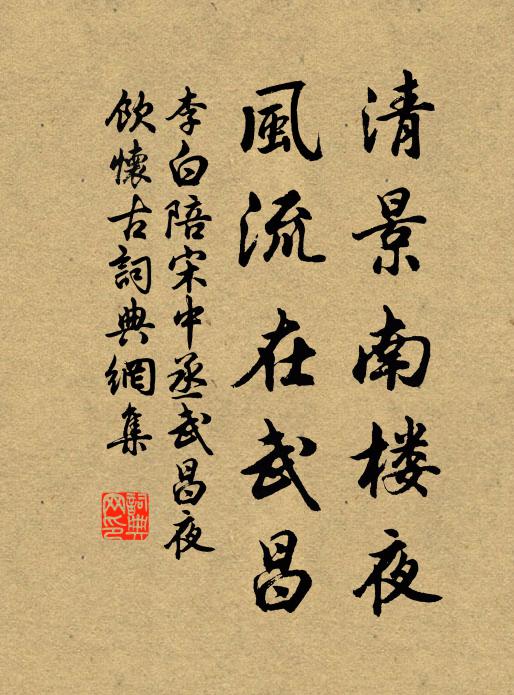 清景南楼夜
風流在武昌
李白陪宋中丞武昌夜
飲懷古詞典網集
詞典网印